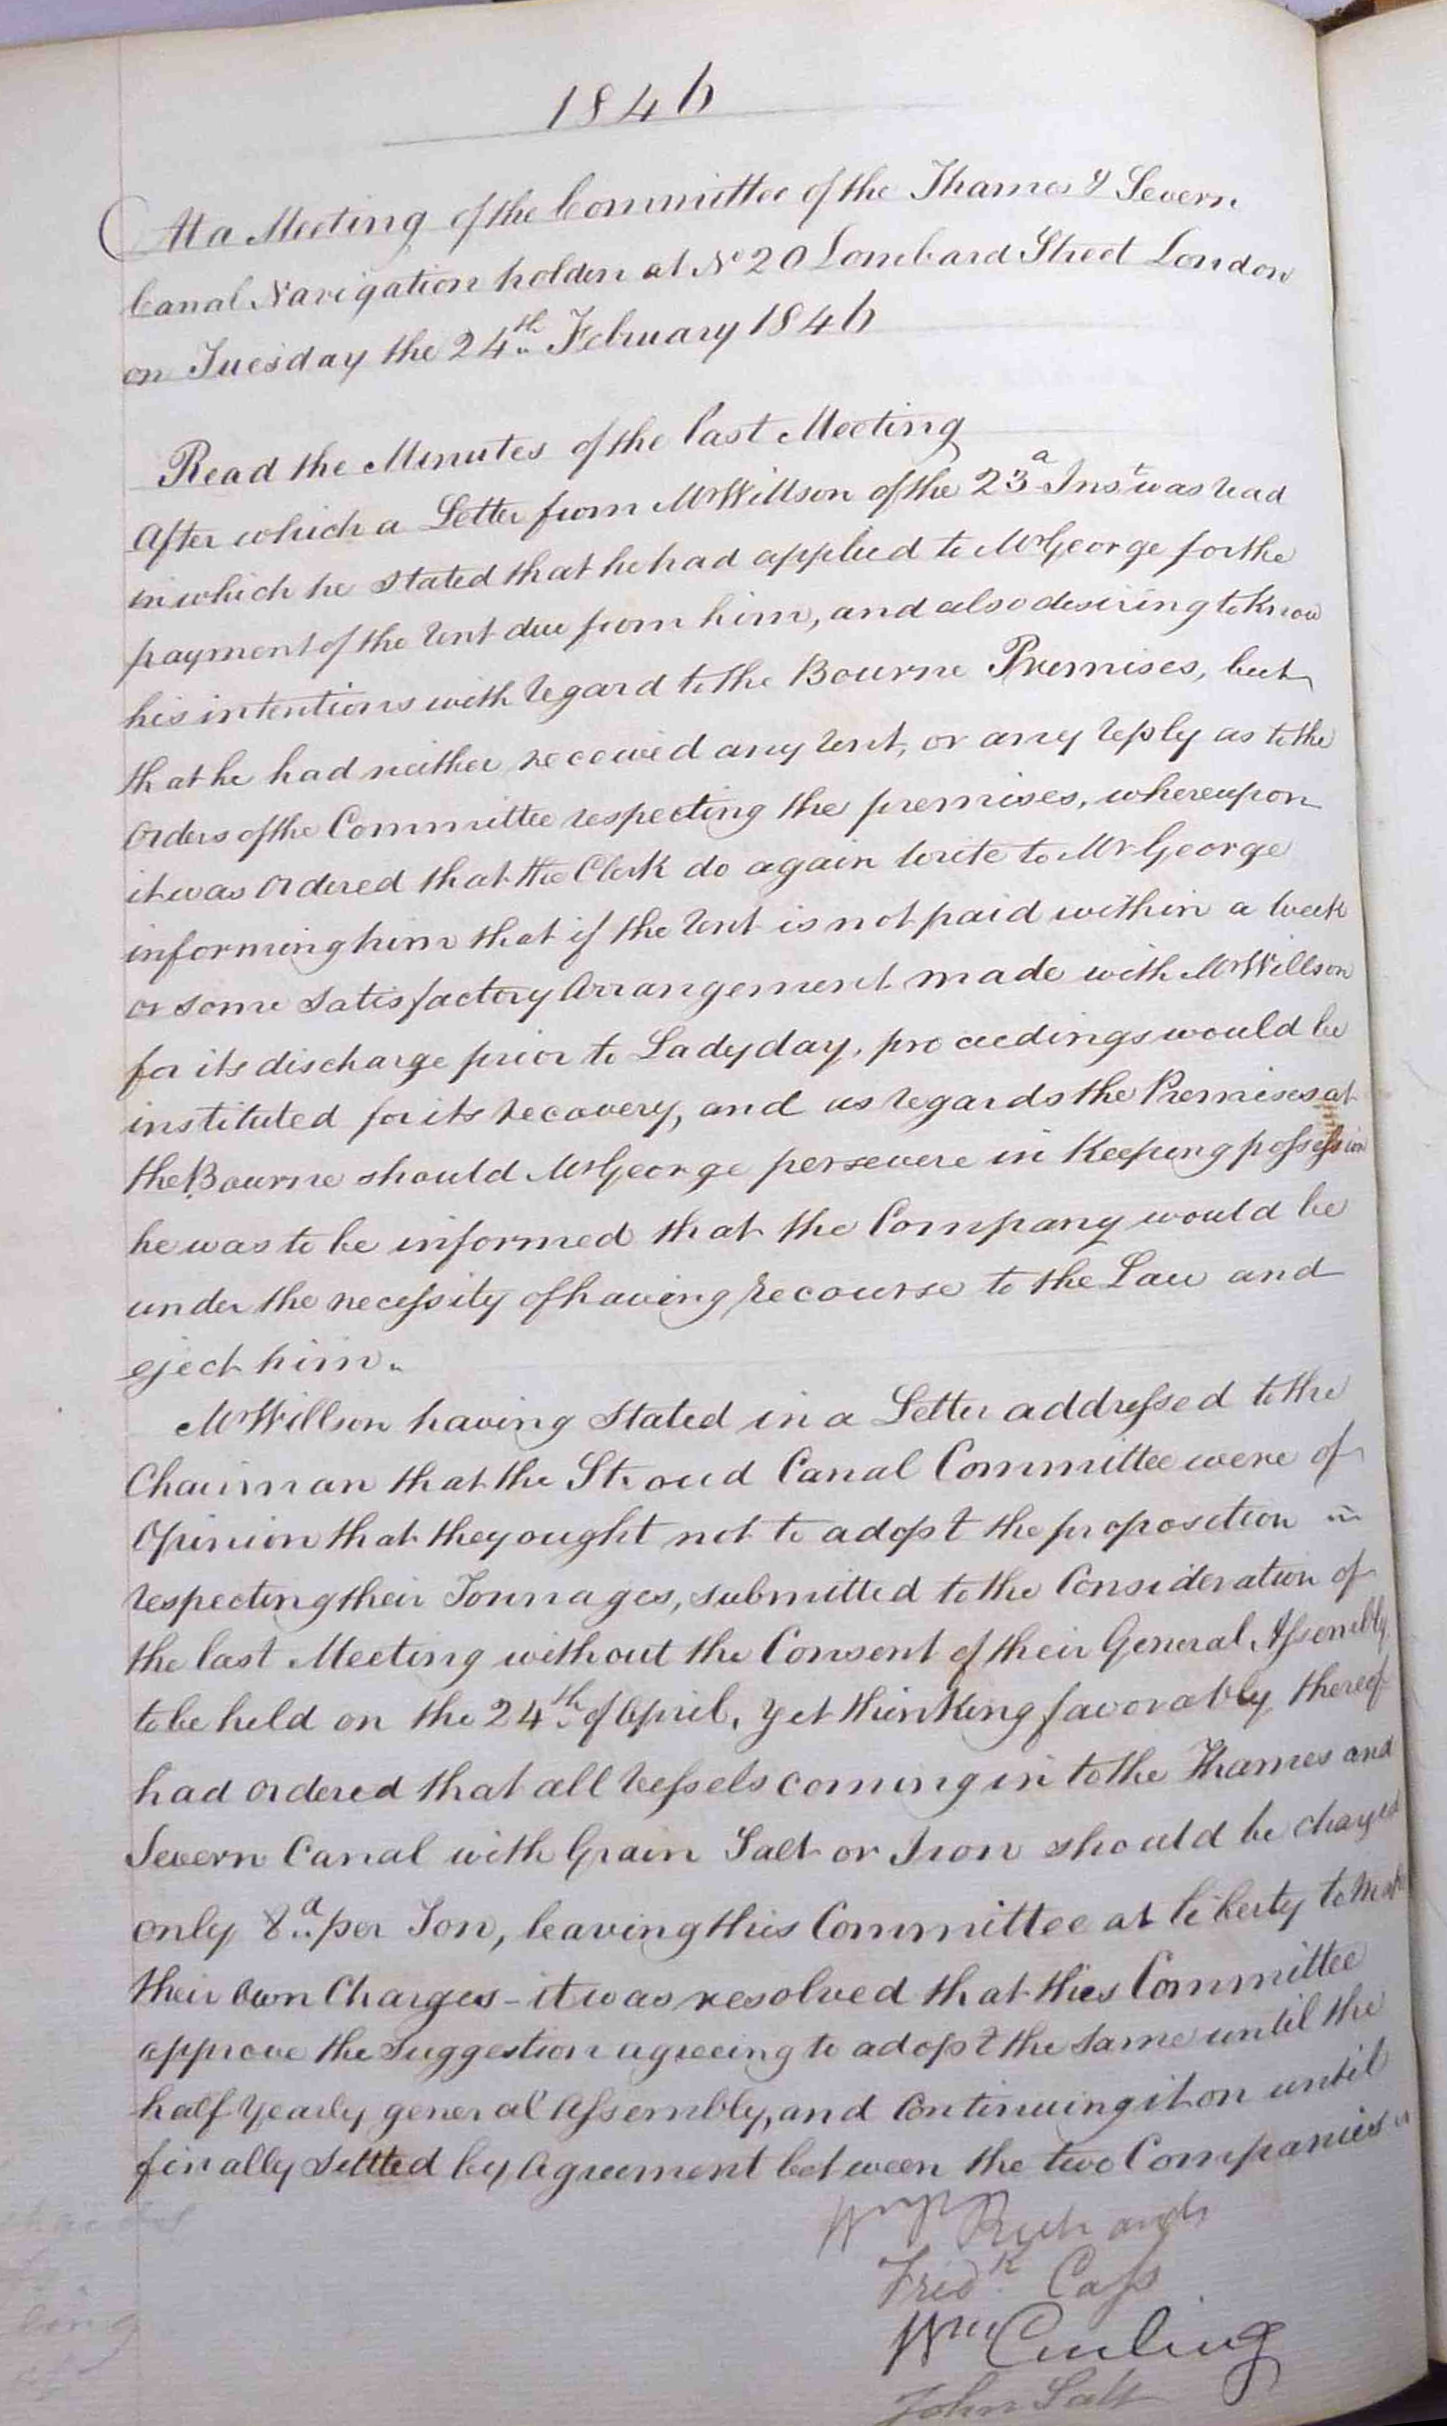 1846
At a Meeting of the Committee of the Thames & Severn
Canal Navigation holden at No 20 Lombard Street London
on Tuesday the 24th February 1846
Read the Minutes of the last Meeting
After which a Letter from Mr Willson of the 23d Inst was read
in which he stated that he had applied to Mr George for the
payment of the rent due from him, and also desiring to know
his intentions with regard to the Bourne Premises, but
that he had neither received any rent, or any reply as to the
orders of the Committee respecting the premises, whereupon
it was ordered that the Clerk do again write to Mr George
informing him that if the rent is not paid within a week
or some satisfactory Arrangement made with Mr Willson
for its discharge prior to Ladyday, proceedings would be
instituted for its recovery, and as regards the Premises at
the Bourne should Mr George persevere in keeping possession
he was to be informed that the Company would be
under the necessity of having recourse to the Law and
eject him.
Mr Willson having stated in a Letter addressed to the
Chairman that the Stroud Canal Committee were of
Opinion that they ought not to adopt the proposition
respecting their Tonnages, submitted to the Consideration of
the last Meeting without the Consent of their General Assembly
to be held on the 24th of April, yet thinking favorably thereof
had ordered that all vessels coming in to the Thames and
Severn Canal with Grain Salt or Iron should be charged
only 8d per Ton, leaving this Committee at liberty to make
their own Charges - it was resolved that this Committee
approve the Suggestion agreeing to adopt the same until the
half Yearly general Assembly, and Continuing it on until
finally settled by Agreement between the two Companies
Richards
Fredk Cass
Wm Curling
John Salt